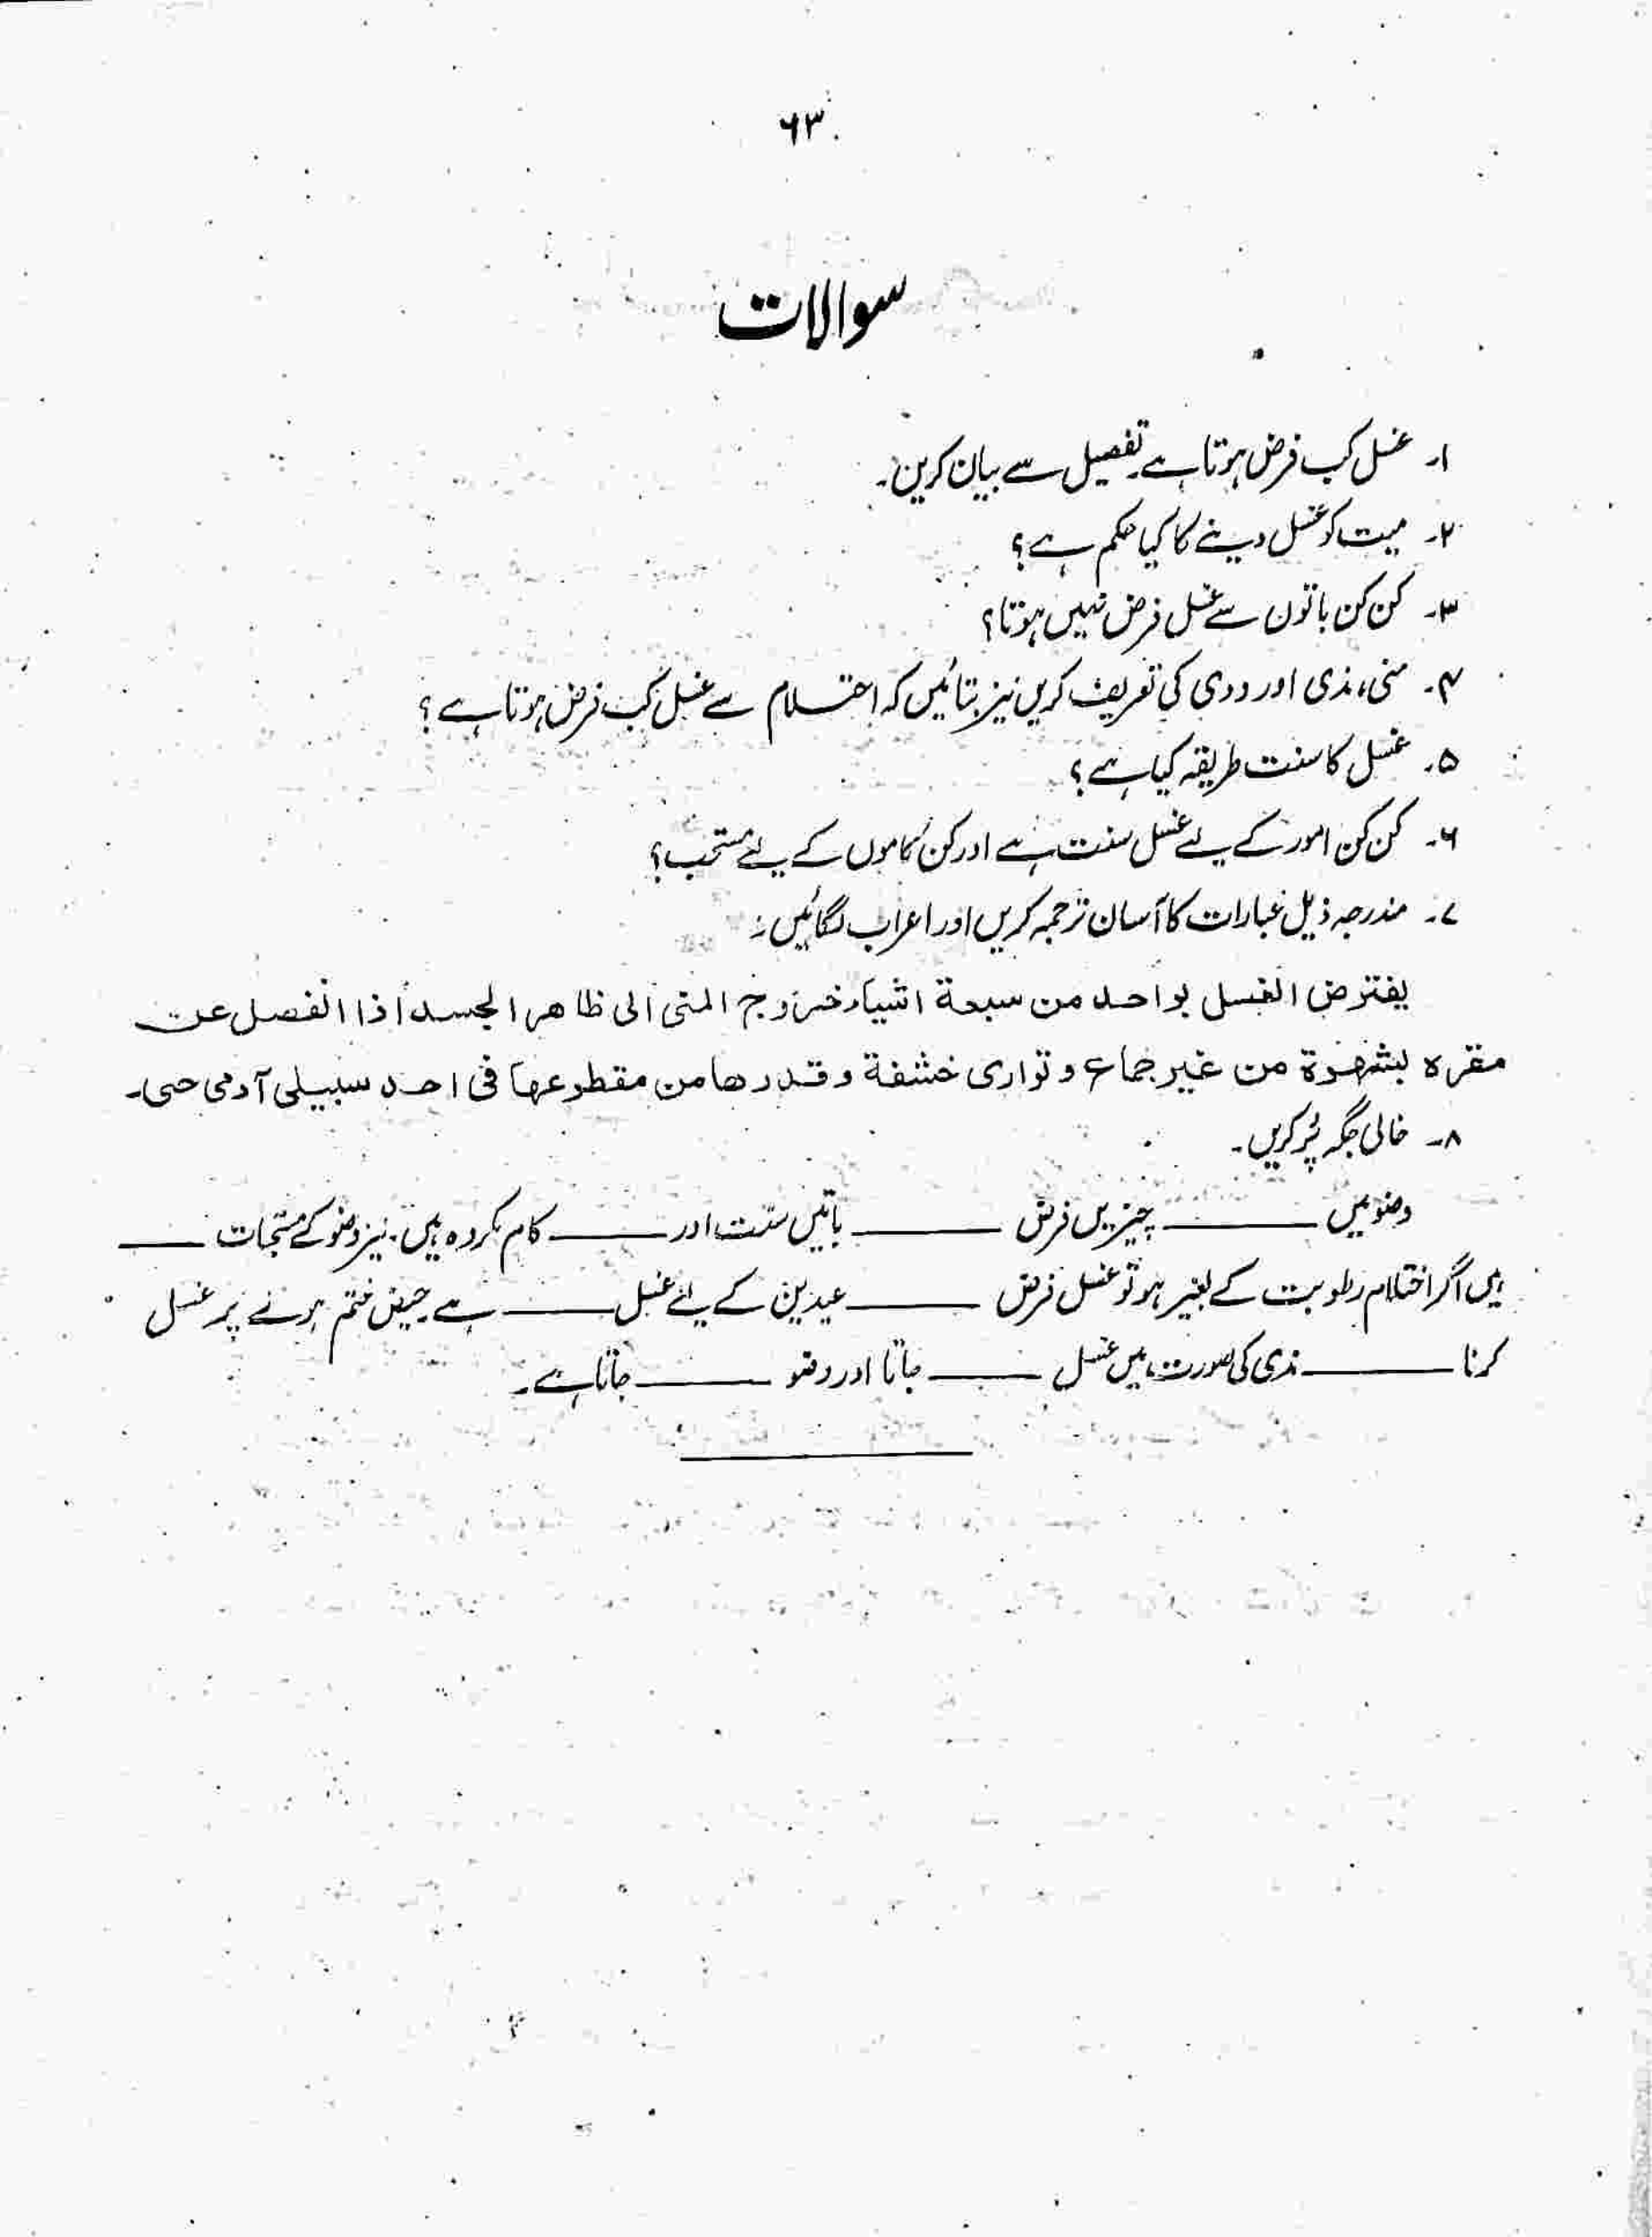 ۶۳
سوالات
۱۔ غسل کب فرض ہوتا ہے۔ تفصیل سے بیان کریں۔
۲۔ میت کو غسل دینے کا کیا حکم ہے؟
۳۔ کن کن باتوں سے غسل فرض نہیں ہوتا؟
۴۔ منی، مذی اور ودی کی تعریف کریں نیز بتائیں کہ احتلام سے غسل کب فرض ہوتا ہے؟
۵۔ غسل کا سنت طریقہ کیا ہے؟
۶۔ کن کن امور کے لیے غسل سنت ہے اور کن کاموں کے لیے مستحب؟
۷۔ مندرجہ ذیل عبارات کا آسان ترجمہ کریں اور اعراب لگائیں:
یفترض الغسل بواحد من سبعة اشیاء خروج المنی الی ظاهر الجسد اذا انفصل عن
مقره بشهوة من غیر جماع و تواری حشفة و قدرها من مقطوعها فی احد سبیلی آدمی حی۔
۸۔ خالی جگہ پُر کریں۔
وضو میں ــــــ چیزیں فرض ــــــ باتیں سنّت اور ــــــ کام مکروہ ہیں۔ نیز وضو کے مستحبات ــــــ
ہیں اگر احتلام رطوبت کے بغیر ہو تو غسل فرض ــــــ عیدین کے لیے غسل ــــــ ہے۔ حیض ختم ہونے پر غسل
کرنا ــــــ مذی کی صورت میں غسل ــــــ جاتا اور وضو ــــــ جاتا ہے۔